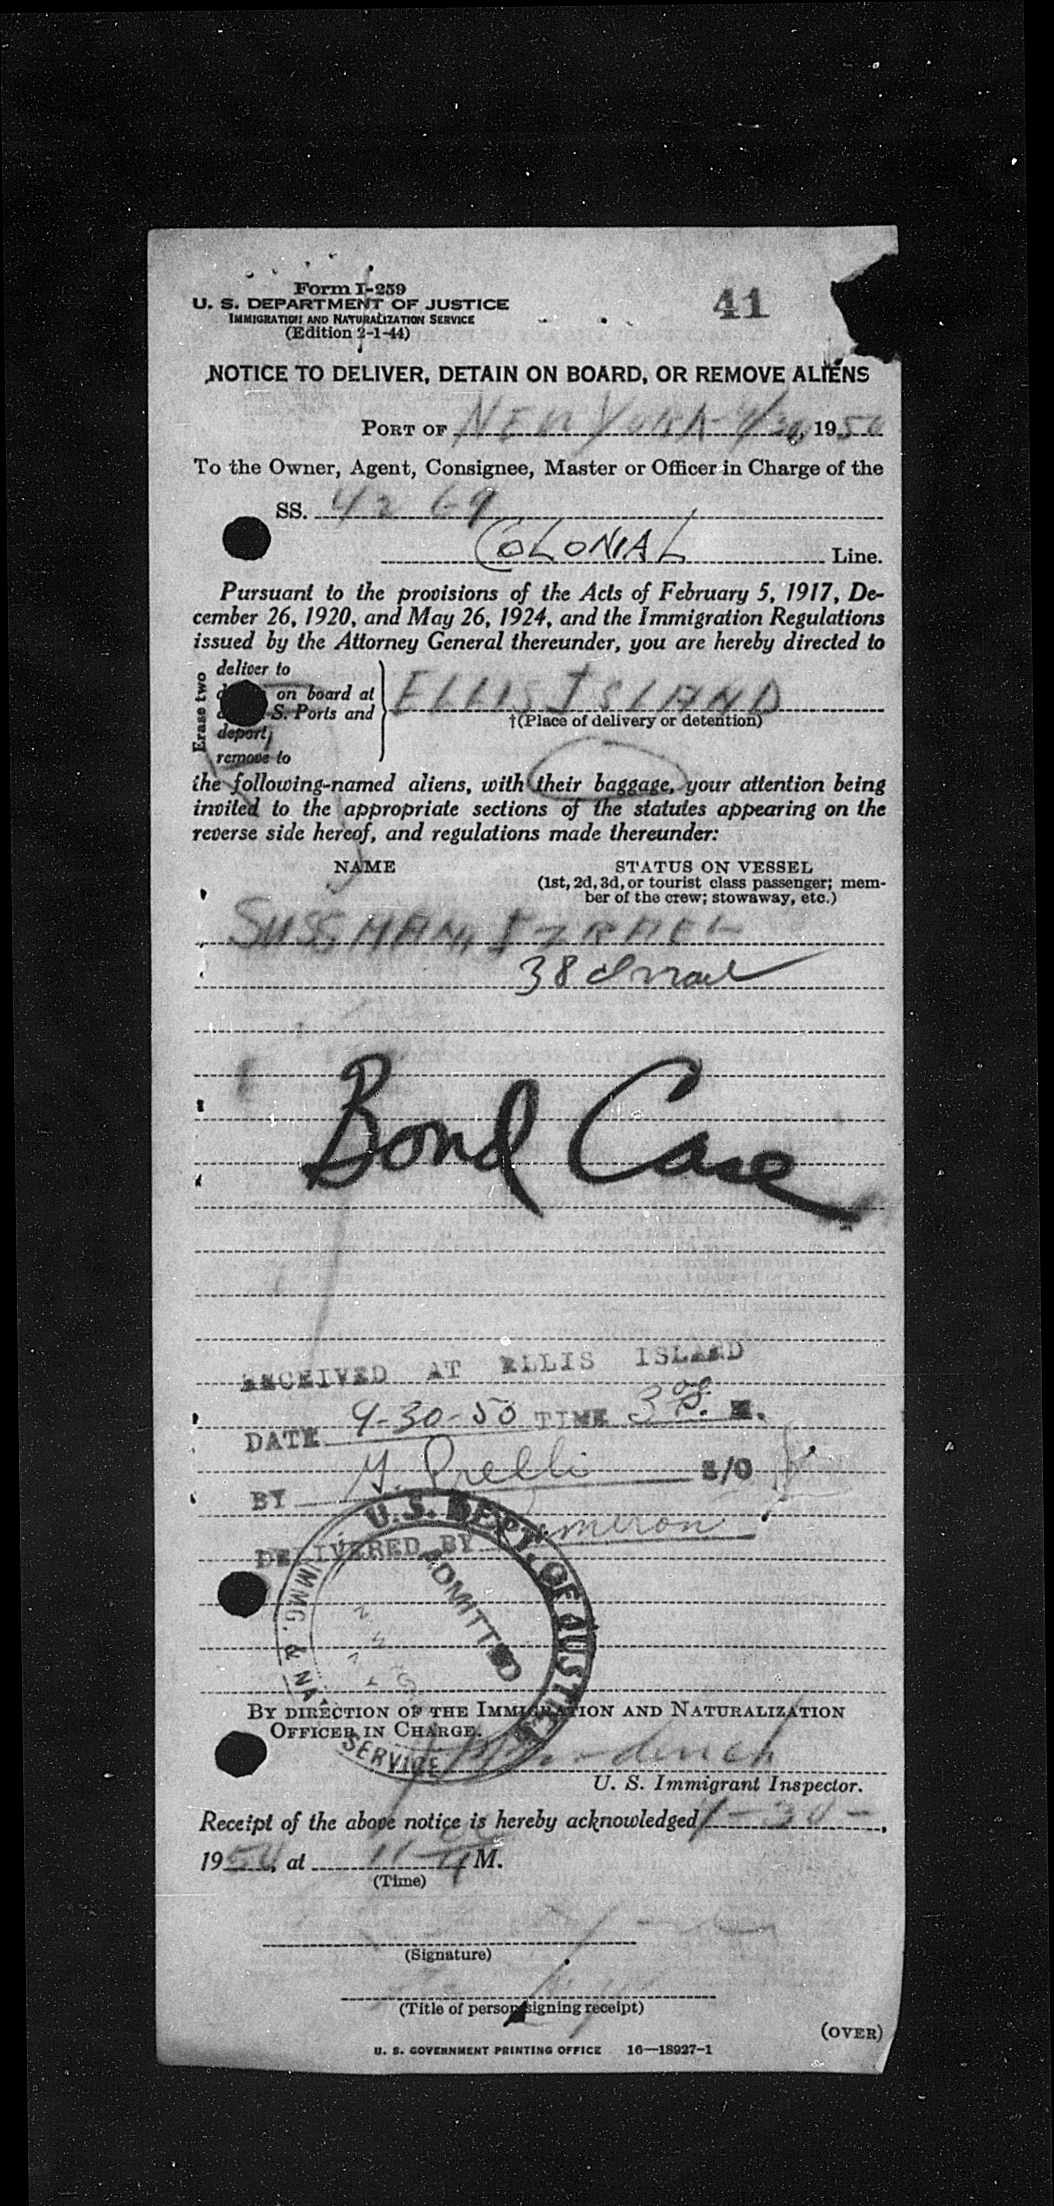 Form I-259
U. S. DEPARTMENT OF JUSTICE
IMMIGRATION AND NATURALIZATION SERVICE
(Edition 2-1-44)
41
NOTICE TO DELIVER, DETAIN ON BOARD, OR REMOVE ALIENS
PORT OF NEW YORK 9/30, 1950
To the Owner, Agent, Consignee, Master or Officer in Charge of the
SS. 42 69
COLONIAL Line.
Pursuant to the provisions of the Acts of February 5, 1917, De-
cember 26, 1920, and May 26, 1924, and the Immigration Regulations
issued by the Attorney General thereunder, you are hereby directed to
Erase two
deliver to
on board at
S. Ports and
deport,
remove to
ELLIS ISLAND
†(Place of delivery or detention)
the following-named aliens, with their baggage, your attention being
invited to the appropriate sections of the statutes appearing on the
reverse side hereof, and regulations made thereunder:
NAME STATUS ON VESSEL
(1st, 2d, 3d, or tourist class passenger; mem-
ber of the crew; stowaway, etc.)
SUSSMAN, IZRAEL
38
Bond Case
RECEIVED AT ELLIS ISLAND
DATE 9-30-50 TIME 3 M.
BY S/O
DELIVERED BY
U.S. DEPT. OF JUSTICE
IMMG. & NA. SERVICE
ADMITTED
BY DIRECTION OF THE IMMIGRATION AND NATURALIZATION
OFFICER IN CHARGE.
U. S. Immigrant Inspector.
Receipt of the above notice is hereby acknowledged 9-30-,
1950, at 11 M.
(Time)
(Signature)
(Title of person signing receipt)
(OVER)
U. S. GOVERNMENT PRINTING OFFICE 16—18927-1